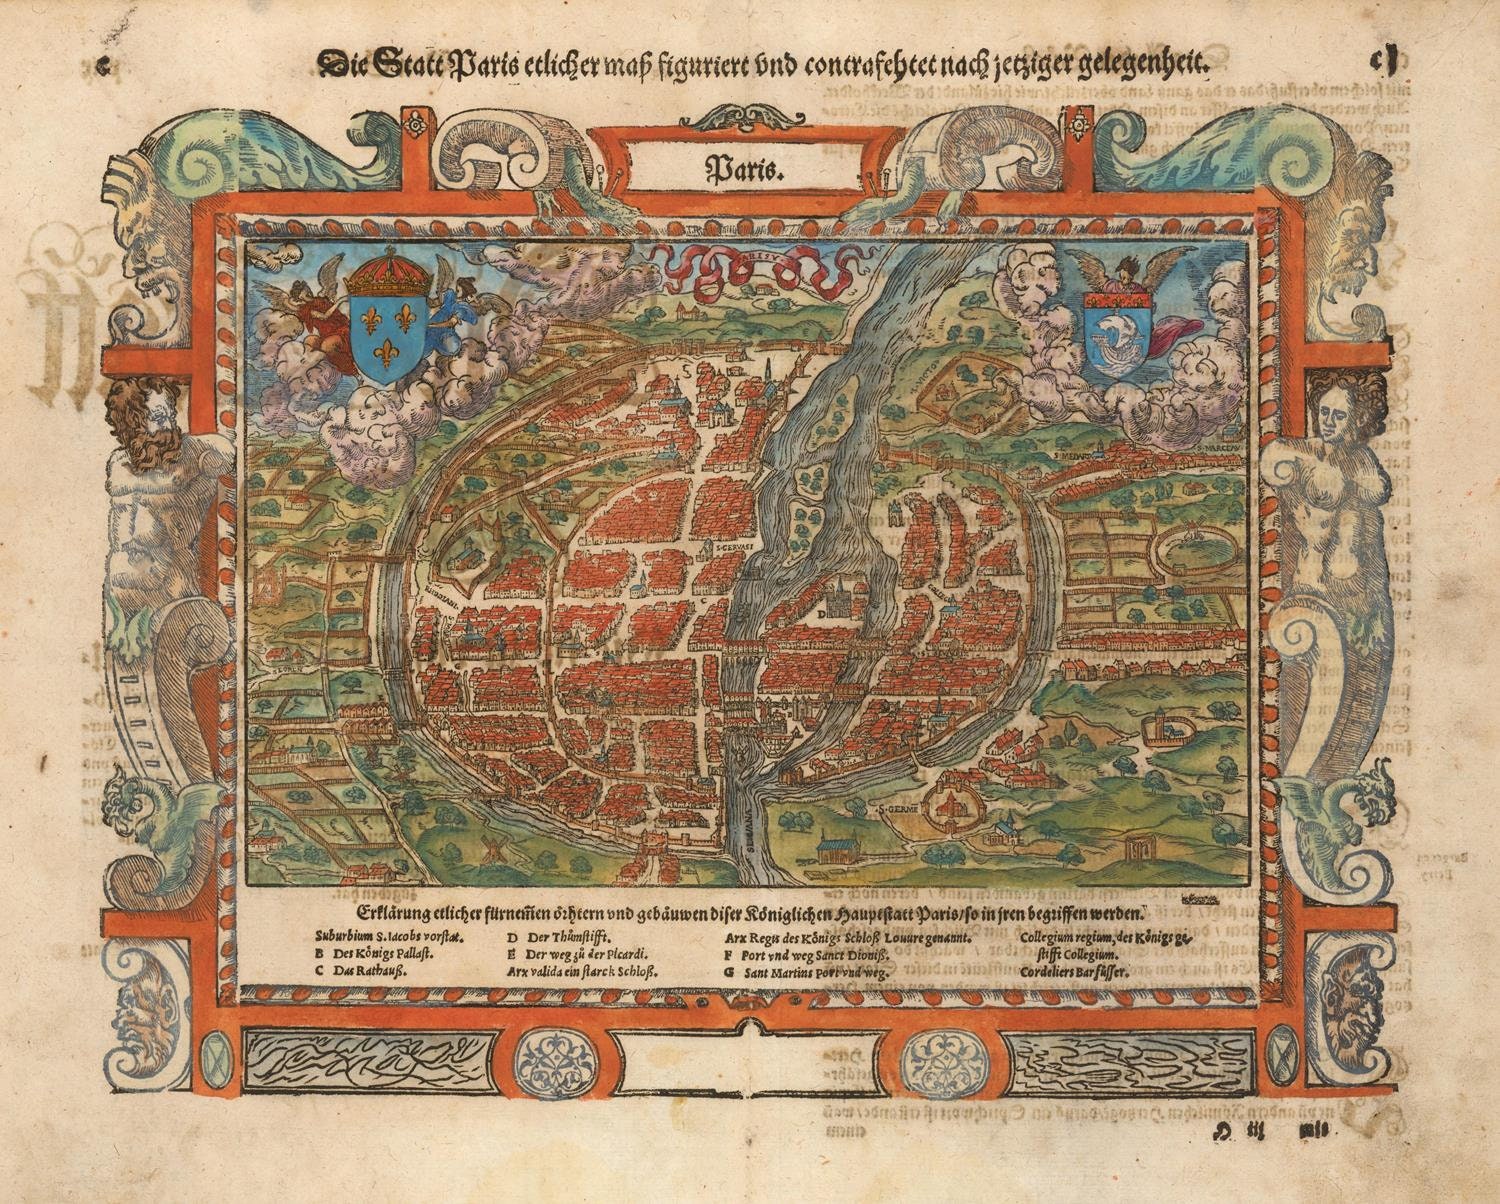 Die Statt Paris etlicher maß figuriert vnd contrafehtet nach jetziger gelegenheit.
Paris.
S. VICTOR
S. MEDART
S. MARCEAV
S. GERVASI
D
C
S. GERME
SEQVANA
Erklärung etlicher fürnemen örhtern vnd gebäuwen diser Königlichen Hauptstatt Paris/ so in jren begriffen werden.
Suburbium S. Iacobs vorstat.
B Des Königs Pallast.
C Das Rathauß.
D Der Thůmstifft.
E Der weg zů der Picardi.
Arx valida ein starck Schloß.
Arx Regis des Königs Schloß Louure genannt.
F Port vnd weg Sanct Dioniß.
G Sant Martins Port vnd weg.
Collegium regium, des Königs ge-
stifft Collegium.
Cordeliers Barfüsser.